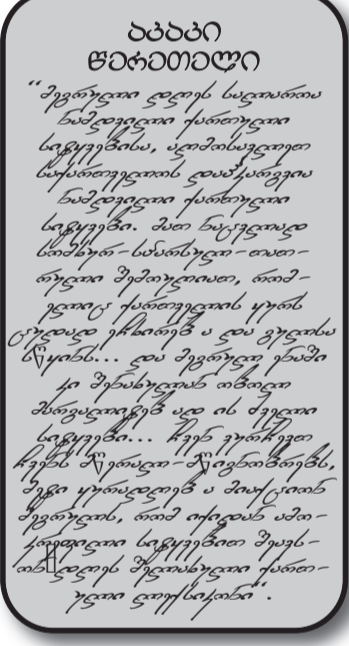 აკაკი
წერეთელი
“მეგრული დღეს საღაროა
ნამდვილი ქართული
სიტყვებისა, აღმოსავლეთ
საქართველოს დაჰკარგვია
ნამდვილი ქართული
სიტყვები. მათ ნაცვლად
სომხურ-სპარსულ-თათ-
რული შემოუღიათ, რომ-
ელიც ქართველის ყურს
ცუდად ეჩხირება და გულსა
სწყინს... და მეგრულ ენაში
კი შენახულან ოხოლ
მარგალიტებად ის ძველი
სიტყვები... ჩვენ ვურჩევთ
ჩვენს მწერალ-მწიგნობრებს,
მეტი ყურადღება მიაქციონ
მეგრულს, რომ იქიდან ამო-
კრეფილი სიტყვებით შეავს-
ონ დღეს შელახული ქართ-
ული ლექსიკონი“.